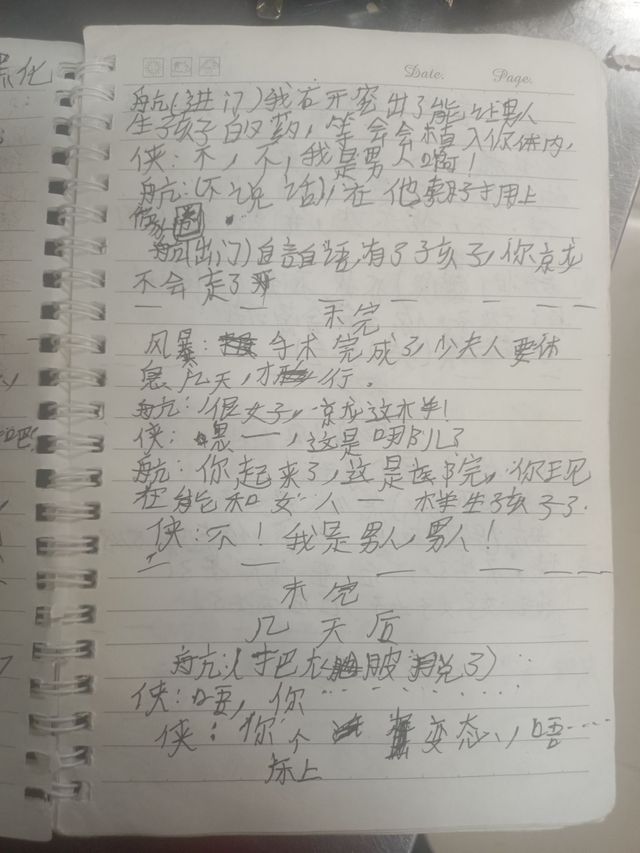 黑化
吧!
Date. Page.
航(进门)我在开究出了能让男人
生子孩子的药,等会会植入你体内,
侠:不,不,我是男人啊!
航:(不说话),在他脖子上用上
圈
航(出门)自言自语,有了子孩子,你京龙
不会走了
未完
风暴:手术完成了,少夫人要休
息几天,才行。
航:很好,京龙这样!
侠:嗯一,这是哪儿
航:你起来了,这是医院,你现
在能和女人一样生子孩子了.
侠:不!我是男人,男人!
未完
几天后
航:(把衣服脱了)
侠:唔,你……
侠:你个变态,唔…
床上